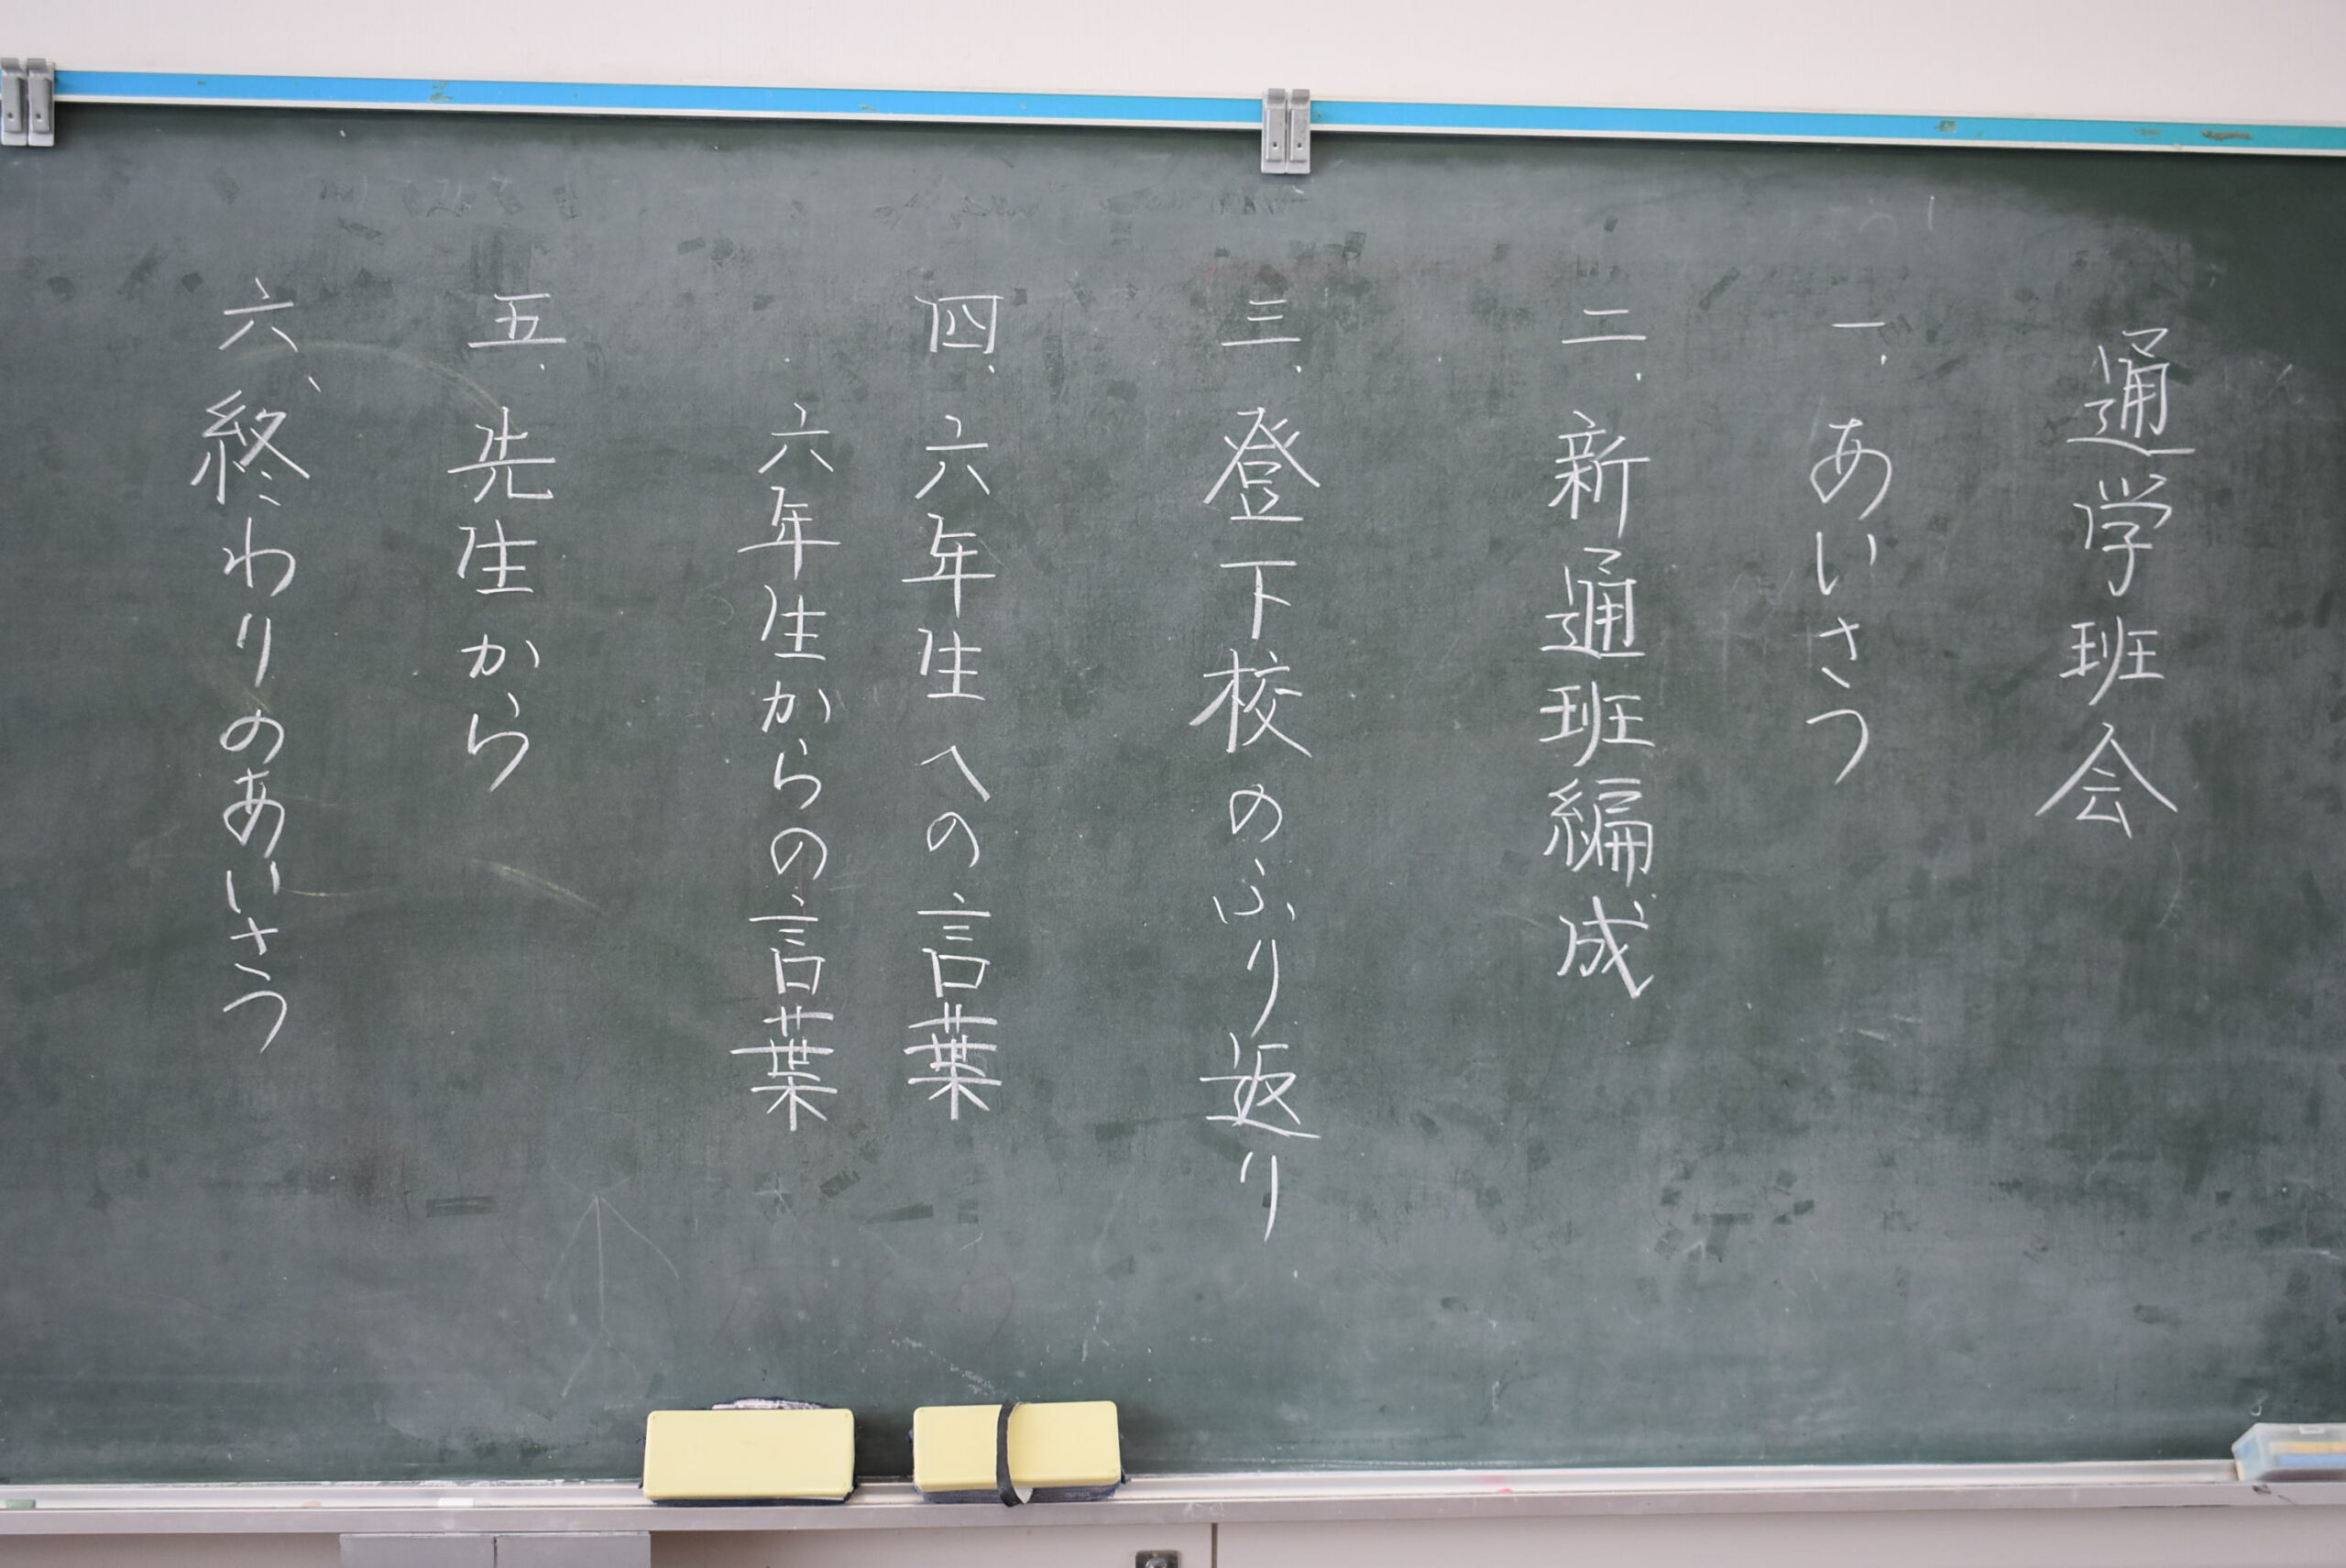 通学班会
一、あいさつ
二、新通班編成
三、登下校のふり返り
四、六年生への言葉
六年生からの言葉
五、先生から
六、終わりのあいさつ